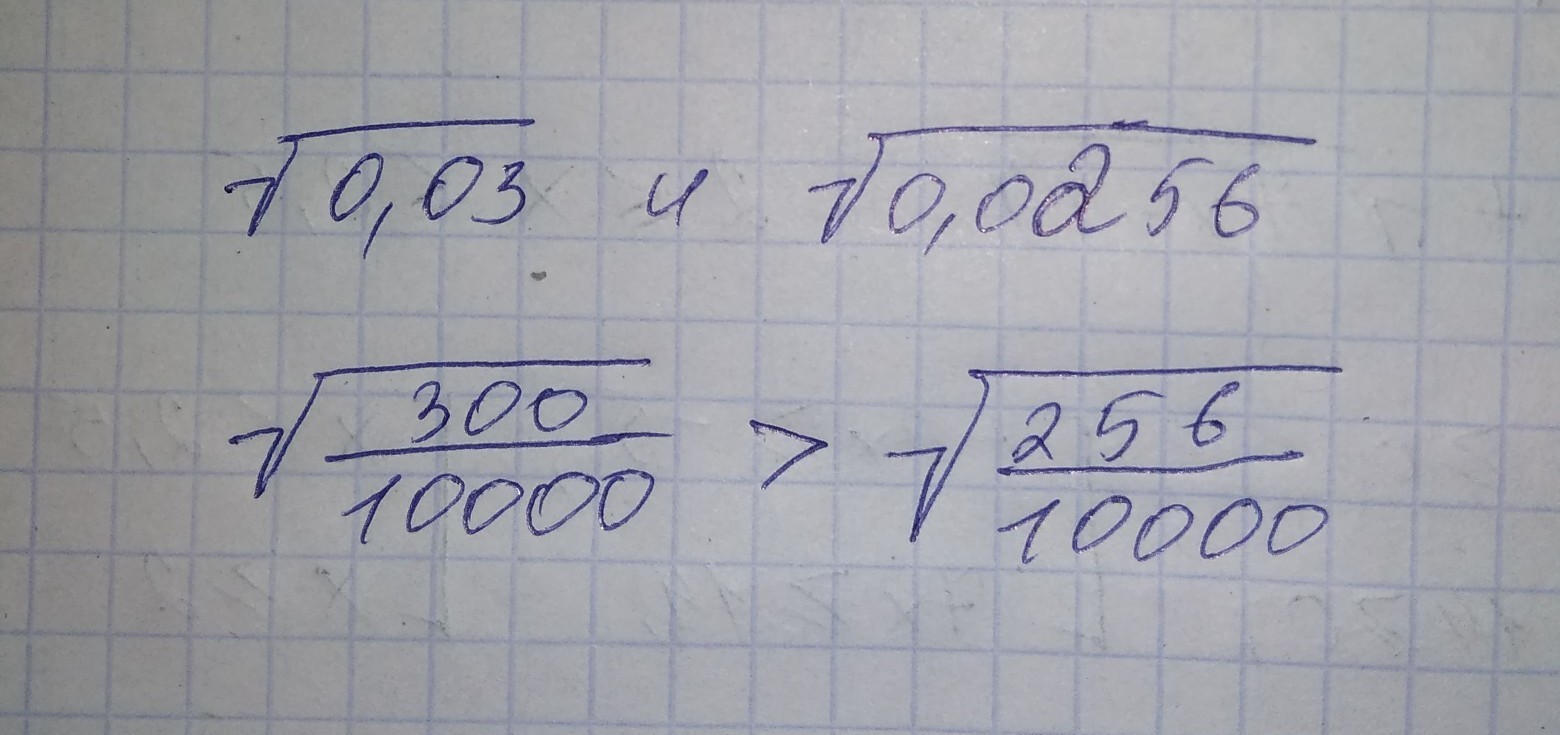 √0,03 и √0,0256
√300/10000 > √256/10000